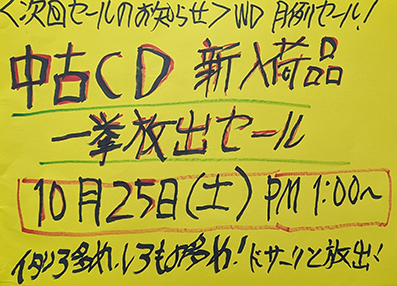 <次回セールのお知らせ> WD 月例セール!
中古CD 新入荷品
一挙放出セール
10月25日(土) PM 1:00~
ドサーリと放出!